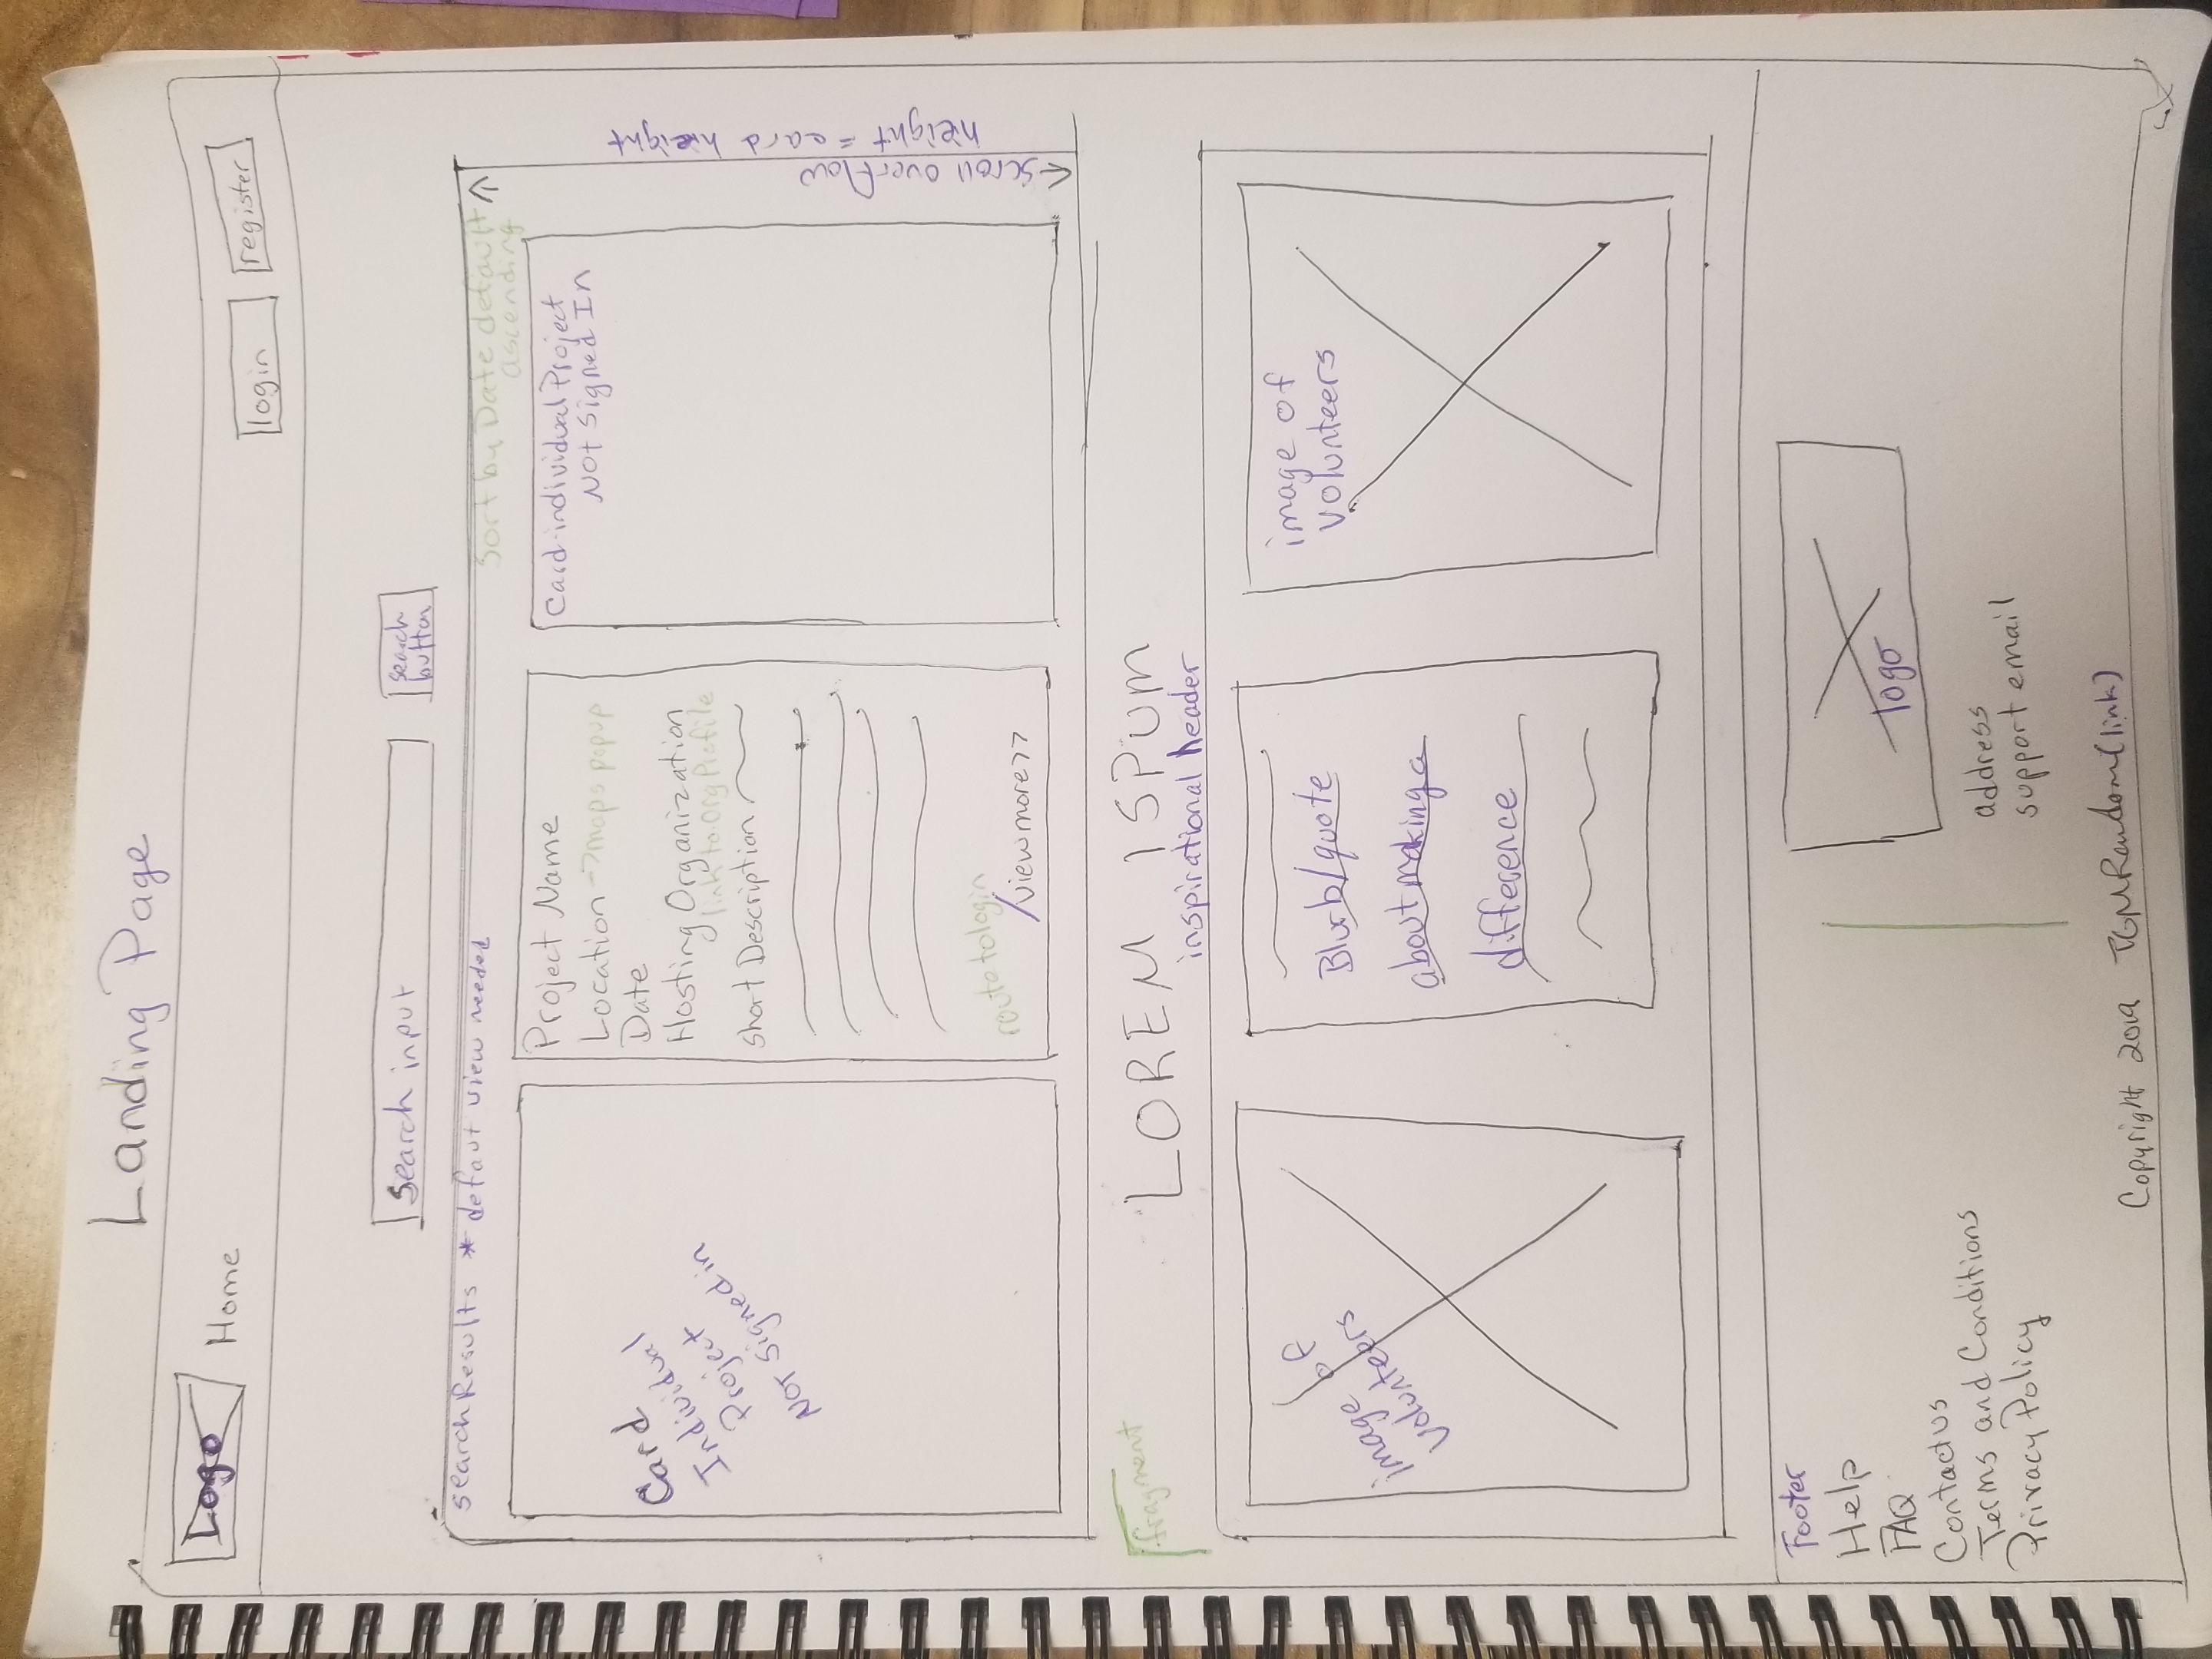 Landing Page
Logo
Home
login
register
search input
search
button
searchResults * defaut view needed
Sort by Date default
ascending
Card
Individual
Project
NOT Signed in
Project Name
Location -> maps popup
Date
Hosting Organization
link to Org Profile
short Description
route to login
/viewmore>>
Card-individual Project
NOT Signed In
<- scroll overflow ->
height = card hieight
fragment
LOREM ISPUM
inspirational header
image of
volunteers
Blurb/quote
about making a
difference
image of
volunteers
Footer
Help
FAQ
Contact us
Terms and Conditions
Privacy Policy
logo
address
support email
Copyright 2019 TGMRandom (link)